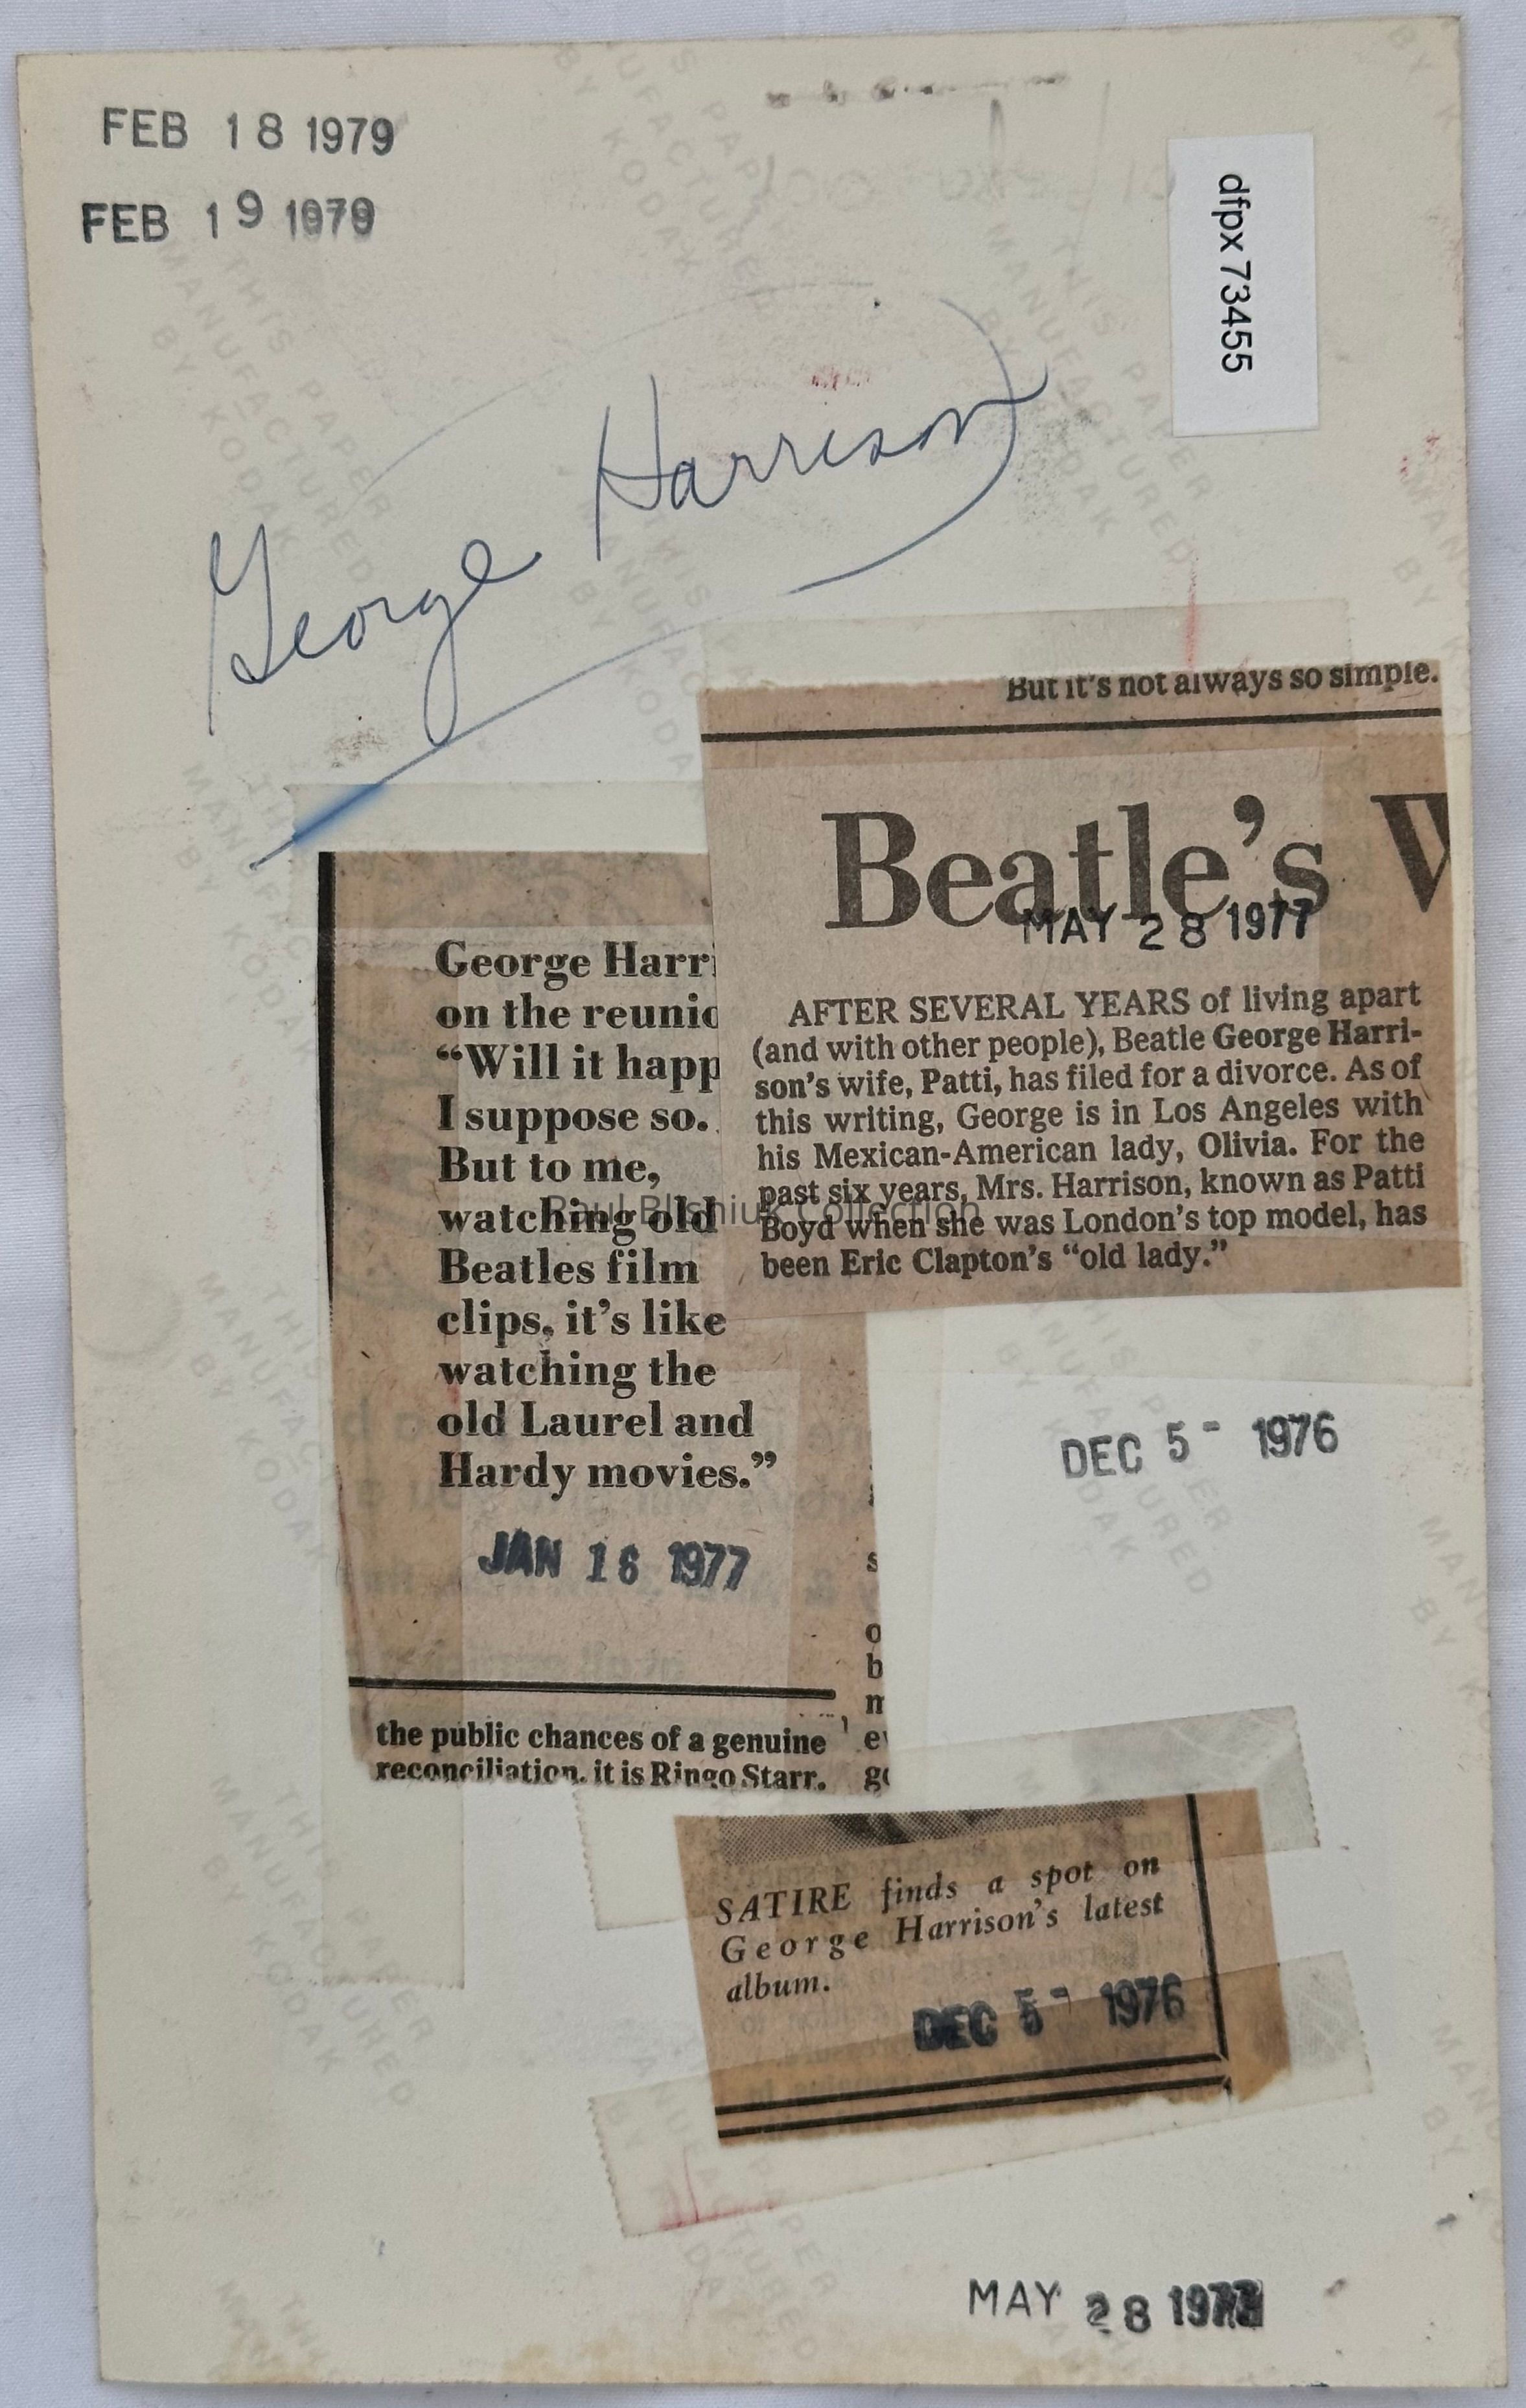 FEB 18 1979
FEB 19 1979
dfpx 73455
George Harrison
But it's not always so simple.
Beatle's W
MAY 28 1977
AFTER SEVERAL YEARS of living apart
(and with other people), Beatle George Harri-
son's wife, Patti, has filed for a divorce. As of
this writing, George is in Los Angeles with
his Mexican-American lady, Olivia. For the
past six years, Mrs. Harrison, known as Patti
Boyd when she was London's top model, has
been Eric Clapton's “old lady.”
George Harri
on the reunio
“Will it happ
I suppose so.
But to me,
watching old
Beatles film
clips, it's like
watching the
old Laurel and
Hardy movies.”
JAN 16 1977
the public chances of a genuine
reconciliation, it is Ringo Starr.
s
o
b
m
e
g
Paul Blisniuk Collection
DEC 5 - 1976
SATIRE finds a spot on
George Harrison's latest
album.
DEC 5 - 1976
MAY 28
THIS PAPER
MANUFACTURED
BY KODAK